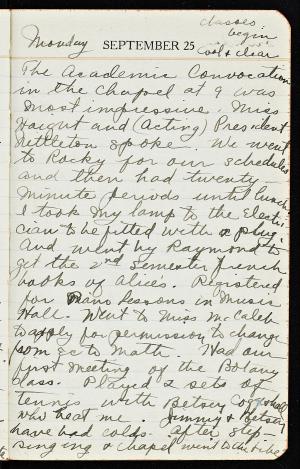 classes
begin
Monday SEPTEMBER 25 cool & clear
The Academic Convocation
in the Chapel at 9 was
most impressive. Miss
Haight and (Acting) President
Nettleton spoke. We went
to Rocky for our schedules
and then had twenty
minute periods until lunch.
I took my lamp to the Electri-
cian to be fitted with a plug.
And went by Raymond to
get the 2nd Semester French
books of Alice's. Registered
for Piano Lessons in Music
Hall. Went to Miss McCaleb
to apply for permission to change
from Ec to Math. Had our
first meeting of the Botany
class. Played 2 sets of
tennis with Betsey
who beat me. Jimmy & Betsey
have bad colds. After Step-
singing & chapel went to the Libe